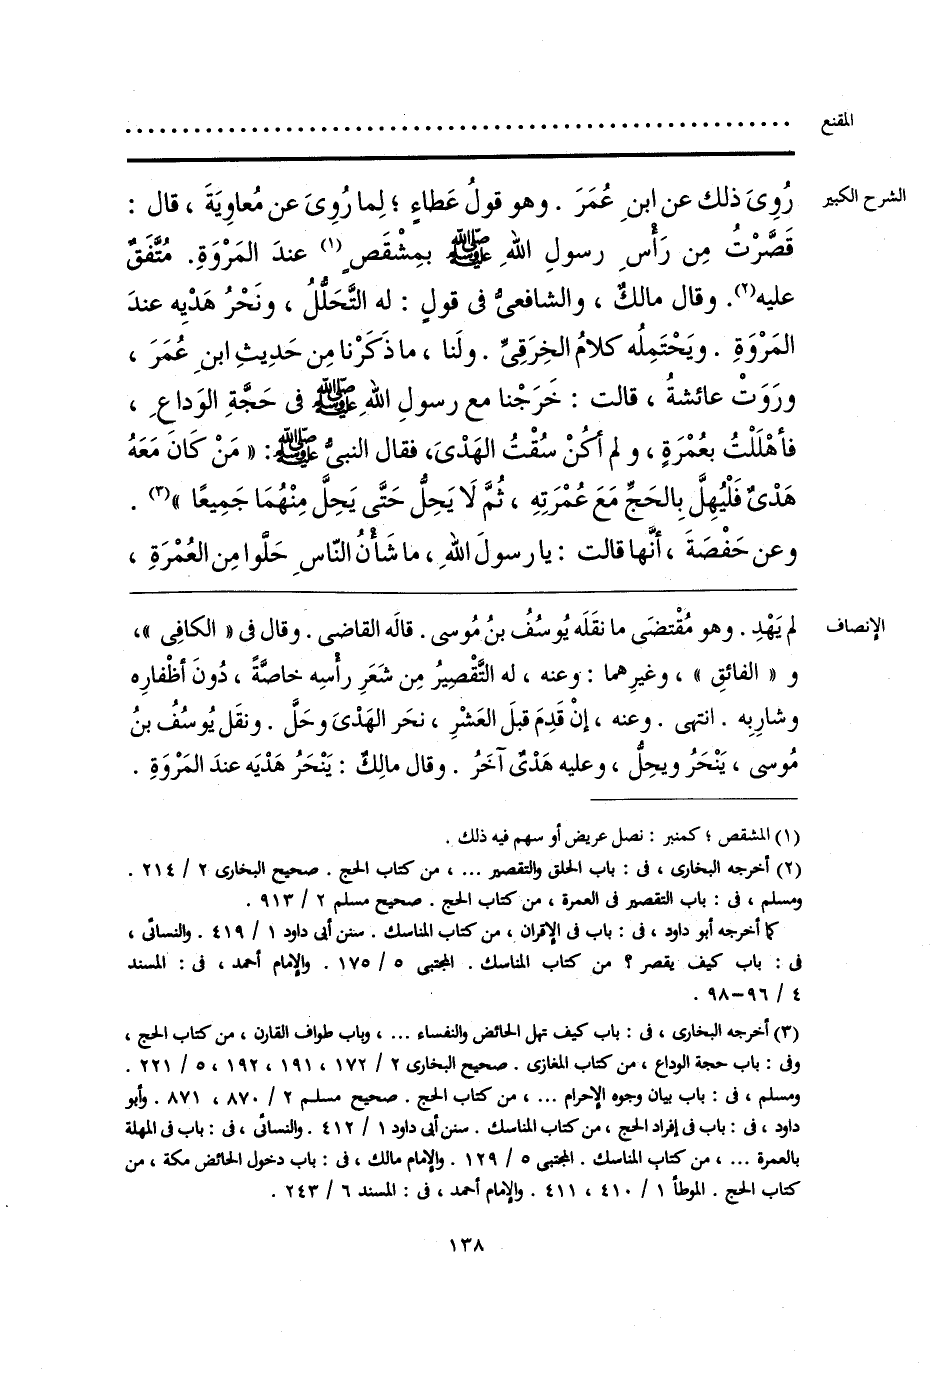 المقنع ..........................................................
الشرح الكبير رُوِىَ ذلك عن ابنِ عُمَرَ . وهو قولُ عَطاءٍ ؛ لِما رُوِىَ عن مُعاوِيَةَ ، قال :
قَصَّرْتُ مِن رَأْسِ رسولِ اللهِ ﷺ بمِشْقَصٍ(١) عندَ المَرْوَةِ. مُتَّفَقٌ
عليه(٢). وقال مالكٌ ، والشافعىُّ فى قولٍ : له التَّحَلُّلُ ، ونَحْرُ هَدْيِه عندَ
المَرْوَةِ . ويَحْتَمِلُه كلامُ الخِرَقِىِّ . ولَنا ، ما ذَكَرْنا مِن حَدِيثِ ابنِ عُمَرَ ،
ورَوَتْ عائشةُ ، قالت : خَرَجْنا مع رسولِ اللهِ ﷺ فى حَجَّةِ الوَداعِ ،
فأهْلَلْتُ بعُمْرَةٍ ، و لم أكُنْ سُقْتُ الهَدْىَ، فقال النبىُّ ﷺ: « مَنْ كَانَ مَعَهُ
هَدْىٌ فَلْيُهِلَّ بِالحَجِّ مَعَ عُمْرَتِهِ ، ثُمَّ لَا يَحِلُّ حَتَّى يَحِلَّ مِنْهُمَا جَمِيعًا »(٣) .
وعن حَفْصَةَ ، أنَّها قالت : يا رسولَ اللهِ ، ما شَأْنُ النّاسِ حَلُّوا مِن العُمْرَةِ ،
الإنصاف لم يَهْدِ . وهو مُقْتضَى ما نقَلَه يُوسُفُ بنُ مُوسى . قالَه القاضى . وقال فى « الكافِى »،
و « الفائقِ » ، وغيرِهما : وعنه ، له التَّقْصِيرُ مِن شَعَرِ رأْسِه خاصَّةً ، دُونَ أظْفارِه
وشارِبِه . انتهى . وعنه ، إنْ قَدِمَ قبلَ العَشْرِ ، نحَر الهَدْىَ وحَلَّ . ونقَل يُوسُفُ بنُ
مُوسى ، يَنْحَرُ ويحِلُّ ، وعليه هَدْىٌ آخَرُ . وقال مالِكٌ : يَنْحَرُ هَدْيَه عندَ المَرْوَةِ .
(١) المشقص ؛ كمنبر : نصل عريض أو سهم فيه ذلك .
(٢) أخرجه البخارى ، فى : باب الحلق والتقصير ... ، من كتاب الحج . صحيح البخارى ٢ / ٢١٤ .
ومسلم ، فى : باب التقصير فى العمرة ، من كتاب الحج . صحيح مسلم ٢ / ٩١٣ .
كما أخرجه أبو داود ، فى : باب فى الإقران ، من كتاب المناسك . سنن أبى داود ١ / ٤١٩ . والنسائى ،
فى : باب كيف يقصر ؟ من كتاب المناسك . المجتبى ٥ / ١٧٥ . والإمام أحمد ، فى : المسند
٤ / ٩٦–٩٨ .
(٣) أخرجه البخارى ، فى : باب كيف تهل الحائض والنفساء ... ، وباب طواف القارن ، من كتاب الحج ،
وفى : باب حجة الوداع ، من كتاب المغازى . صحيح البخارى ٢ / ١٧٢ ، ١٩١ ، ١٩٢ ، ٥ / ٢٢١ .
ومسلم ، فى : باب بيان وجوه الإحرام ... ، من كتاب الحج . صحيح مسلم ٢ / ٨٧٠ ، ٨٧١ . وأبو
داود ، فى : باب فى إفراد الحج ، من كتاب المناسك . سنن أبى داود ١ / ٤١٢ . والنسائى ، فى : باب فى المهلة
بالعمرة ... ، من كتاب المناسك . المجتبى ٥ / ١٢٩ . والإمام مالك ، فى : باب دخول الحائض مكة ، من
كتاب الحج . الموطأ ١ / ٤١٠ ، ٤١١ . والإمام أحمد ، فى : المسند ٦ / ٢٤٣ .
١٣٨